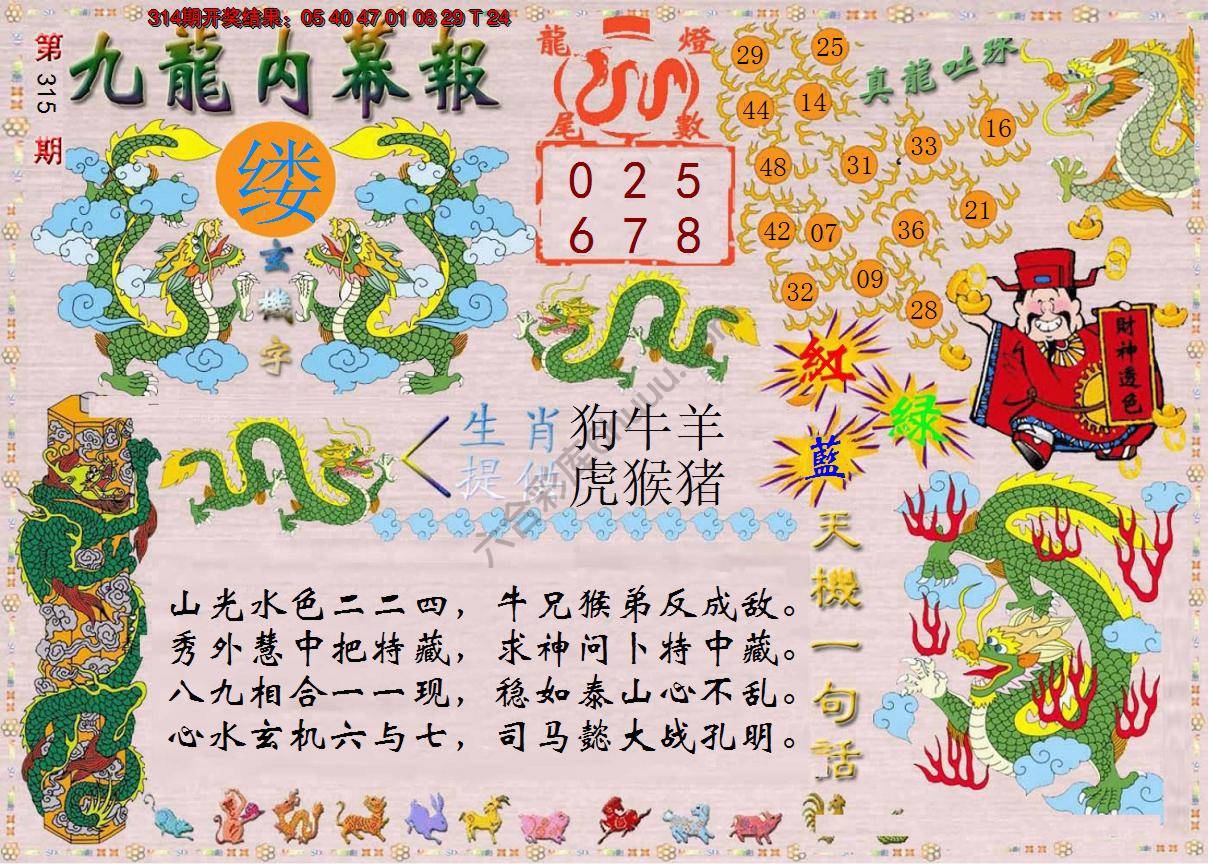 314期开奖结果：05 40 47 01 08 29 T 24
第315期
九龍內幕報
缕
玄機字
龍燈
尾數
0 2 5
6 7 8
真龍吐珠
29 25
44 14
48 31 33 16
42 07 36 21
32 09 28
財神透色
紅
綠
藍
生肖 狗牛羊
提供 虎猴猪
天機一句話
山光水色二二四，牛兄猴弟反成敌。
秀外慧中把特藏，求神问卜特中藏。
八九相合一一现，稳如泰山心不乱。
心水玄机六与七，司马懿大战孔明。